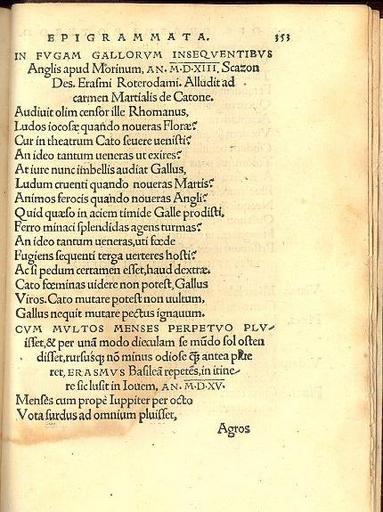 EPIGRAMMATA. 353
IN FVGAM GALLORVM INSEQVENTIBVS
Anglis apud Morinum, AN. M.D.XIII. Scazon
Des. Erasmi Roterodami. Alludit ad
carmen Martialis de Catone.
Audiuit olim censor ille Rhomanus,
Ludos iocosæ quando noueras Floræ?
Cur in theatrum Cato seuere uenisti?
An ideo tantum ueneras ut exires?
At iure nunc imbellis audiat Gallus,
Ludum cruenti quando noueras Martis?
Animos ferocis quando noueras Angli?
Quid quæso in aciem timide Galle prodisti,
Ferro minaci splendidas agens turmas?
An ideo tantum ueneras, uti fœde
Fugiens sequenti terga uerteres hosti?
Ac si pedum certamen esset, haud dextræ.
Cato fœminas uidere non potest, Gallus
Viros. Cato mutare potest non uultum,
Gallus nequit mutare pectus ignauum.
CVM MVLTOS MENSES PERPETVO PLV⸗
isset, & per unā modo dieculam se mūdo sol osten
disset, rursusq; nō minus odiose q̃ antea plue
ret, ERASMVS Basileā repetēs, in itine⸗
re sic lusit in Iouem, AN. M.D.XV.
Menses cum prope Iuppiter per octo
Vota surdus ad omnium pluisset,
Agros